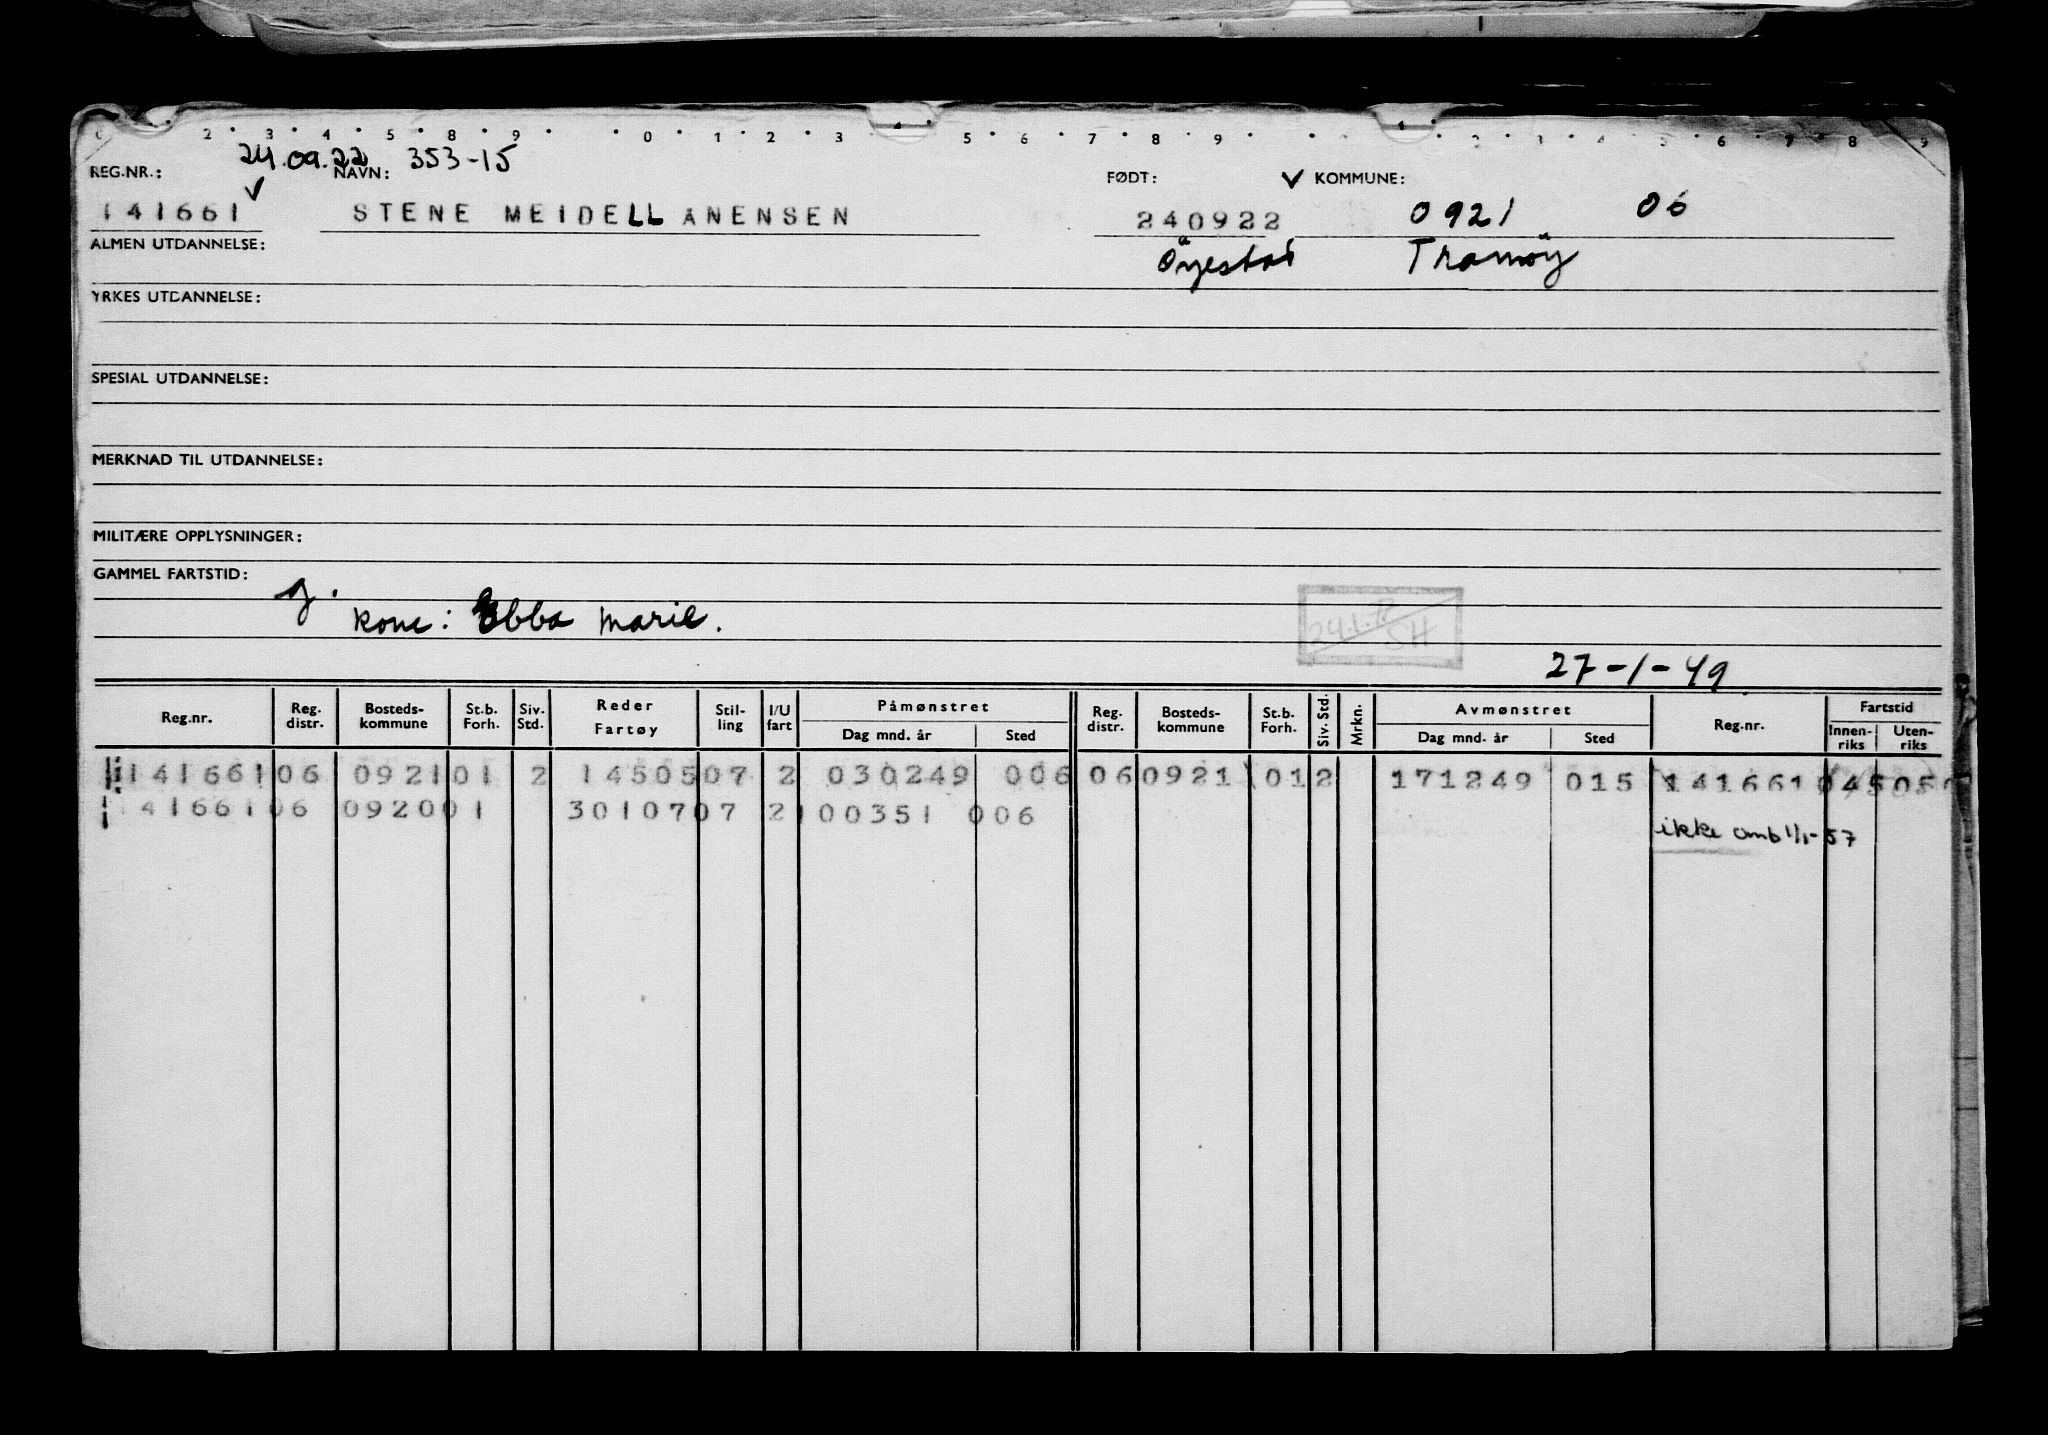 0 2 3 4 5 8 9 0 1 2 3 5 6 7 8 9 2 3 4 5 6 7 8 9
24.09.22 353-15
REG.NR.: NAVN: FØDT: KOMMUNE:
141661 STENE MEIDELL ANENSEN 240922 0921 06
ALMEN UTDANNELSE: Øyestad Tromøy
YRKES UTDANNELSE:
SPESIAL UTDANNELSE:
MERKNAD TIL UTDANNELSE:
MILITÆRE OPPLYSNINGER:
GAMMEL FARTSTID:
g.
kone: Ebba Marie.
SH
27-1-49
Reg.nr. Reg. distr. Bosteds-kommune St.b. Forh. Siv. Std. Reder Fartøy Stil-ling I/U fart Påmønstret Dag mnd. år Sted Reg. distr. Bosteds-kommune St.b. Forh. Siv. Std. Mrkn. Avmønstret Dag mnd. år Sted Reg.nr. Fartstid Innen-riks Uten-riks
141661 06 0921 01 2 14505 07 2 030249 006 06 0921 01 2 171249 015 141661
141661 06 0920 01 30107 07 2 100351 006
ikke omb 1/1-57